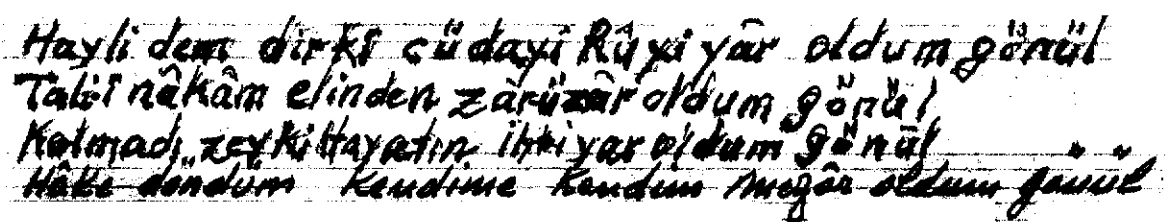 Hayli dem dirki cüdayi Rûyi yâr oldum gönül
Talii nâkâm elinden zârüzâr oldum gönül
Kalmadı zevki Hayatın ihtiyar oldum gönül
Hâke döndüm kendime kendim mezâr oldum gönül